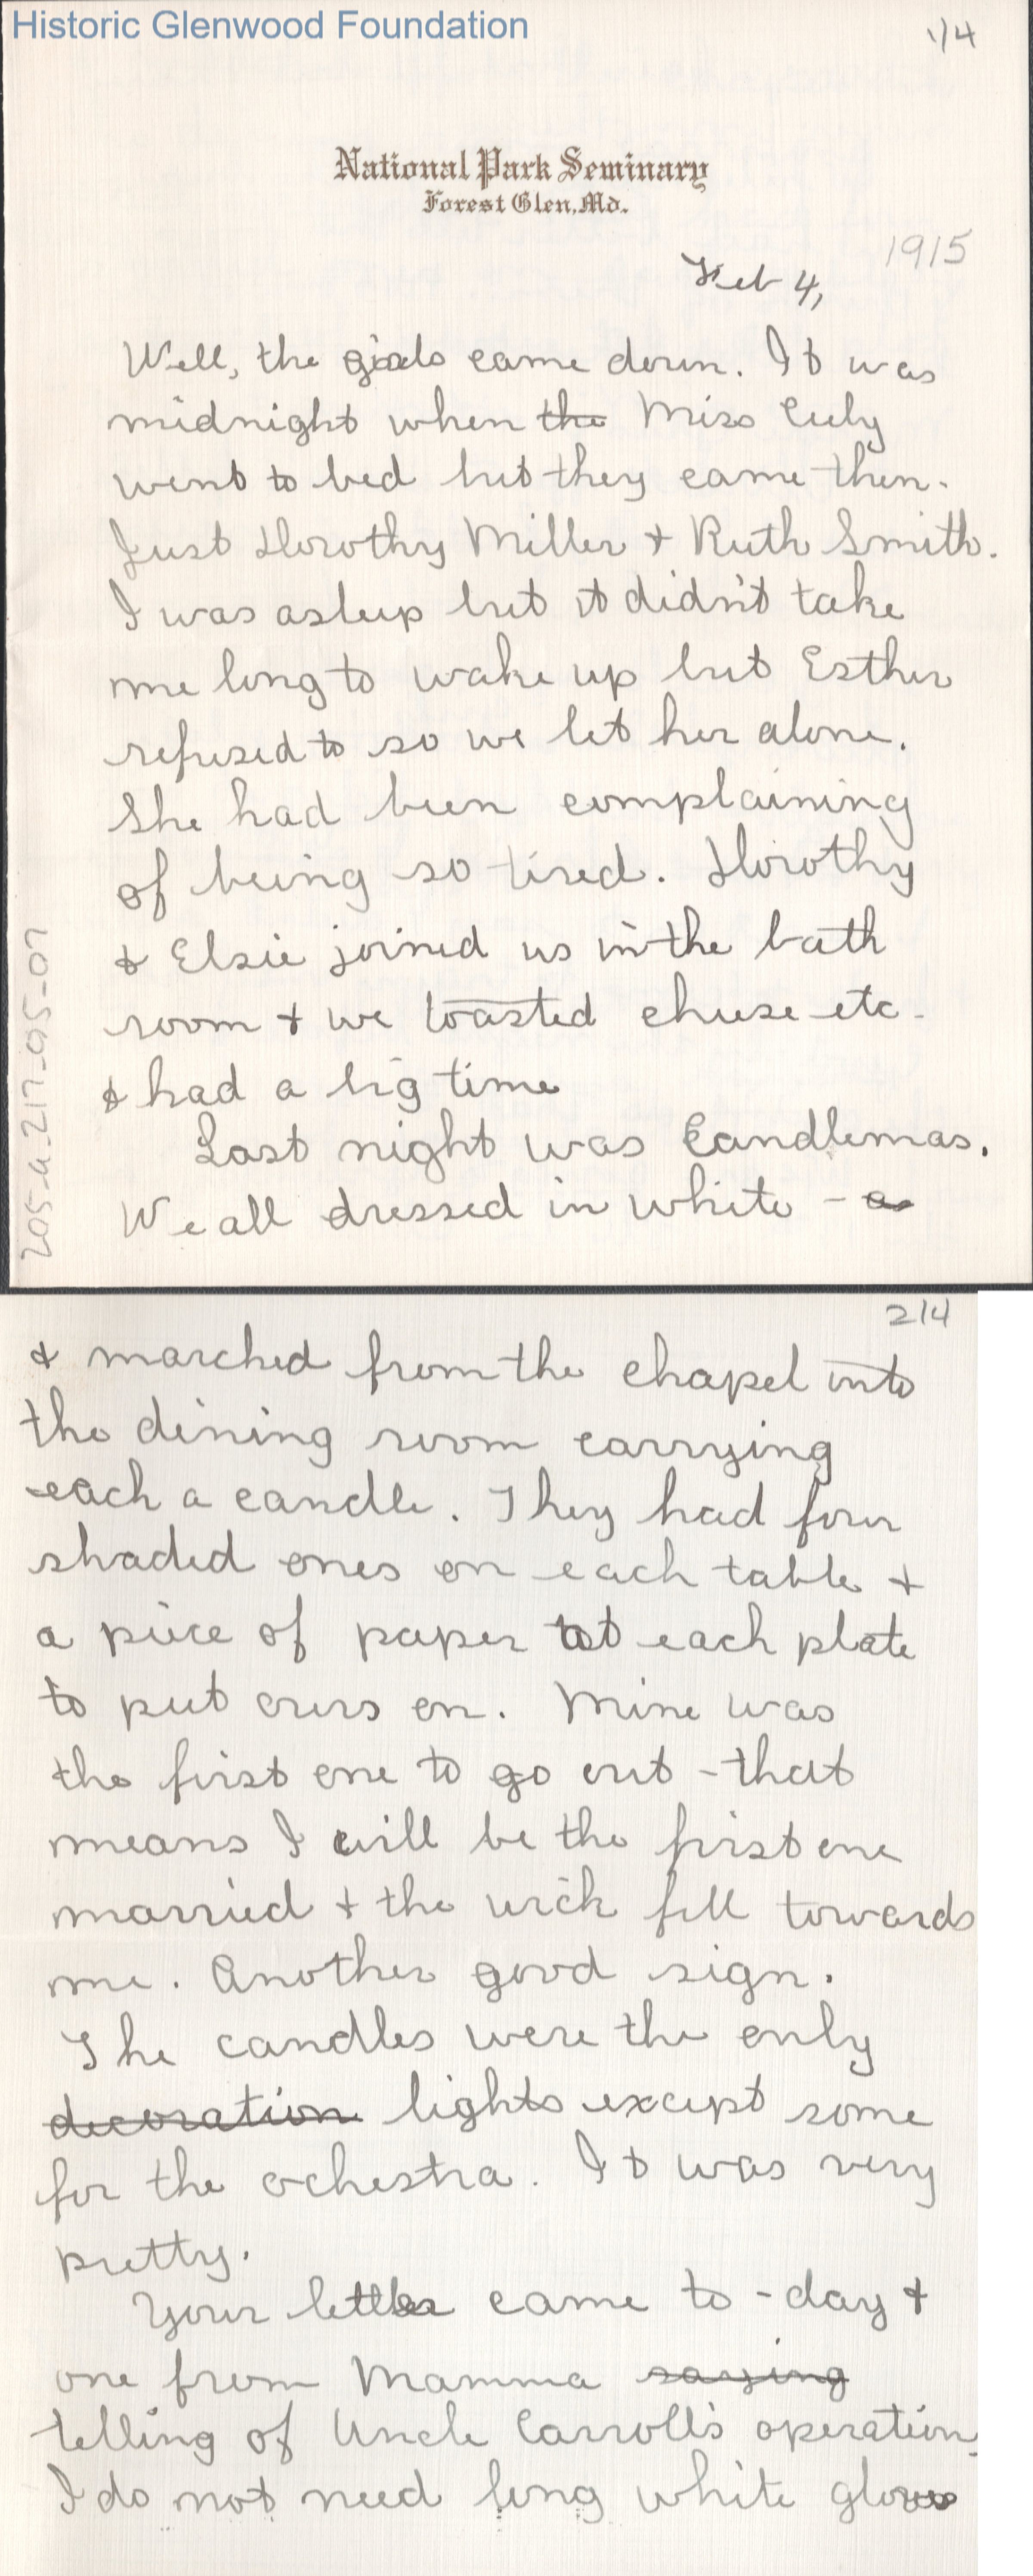 Historic Glenwood Foundation
1/4
National Park Seminary
Forest Glen, Md.
1915
Feb 4,
Well, the girls came down. It was
midnight when the Miss Culy
went to bed but they came then.
Just Dorothy Miller + Ruth Smith.
I was asleep but it didn't take
me long to wake up but Esther
refused to so we let her alone.
She had been complaining
of being so tired. Dorothy
& Elsie joined us in the bath
room + we toasted cheese etc.
& had a big time
Last night was Candlemas.
We all dressed in white - a
205.a.217.95-07
2/4
& marched from the chapel into
the dining room carrying
each a candle. They had four
shaded ones on each table +
a piece of paper at each plate
to put ours on. Mine was
the first one to go out - that
means I will be the first one
married + the wick fell towards
me. Another good sign.
The candles were the only
decoration lights except some
for the ochestra. It was very
pretty.
Your letter came to-day +
one from Mamma saying
telling of Uncle Carroll's operation.
I do not need long white gloves